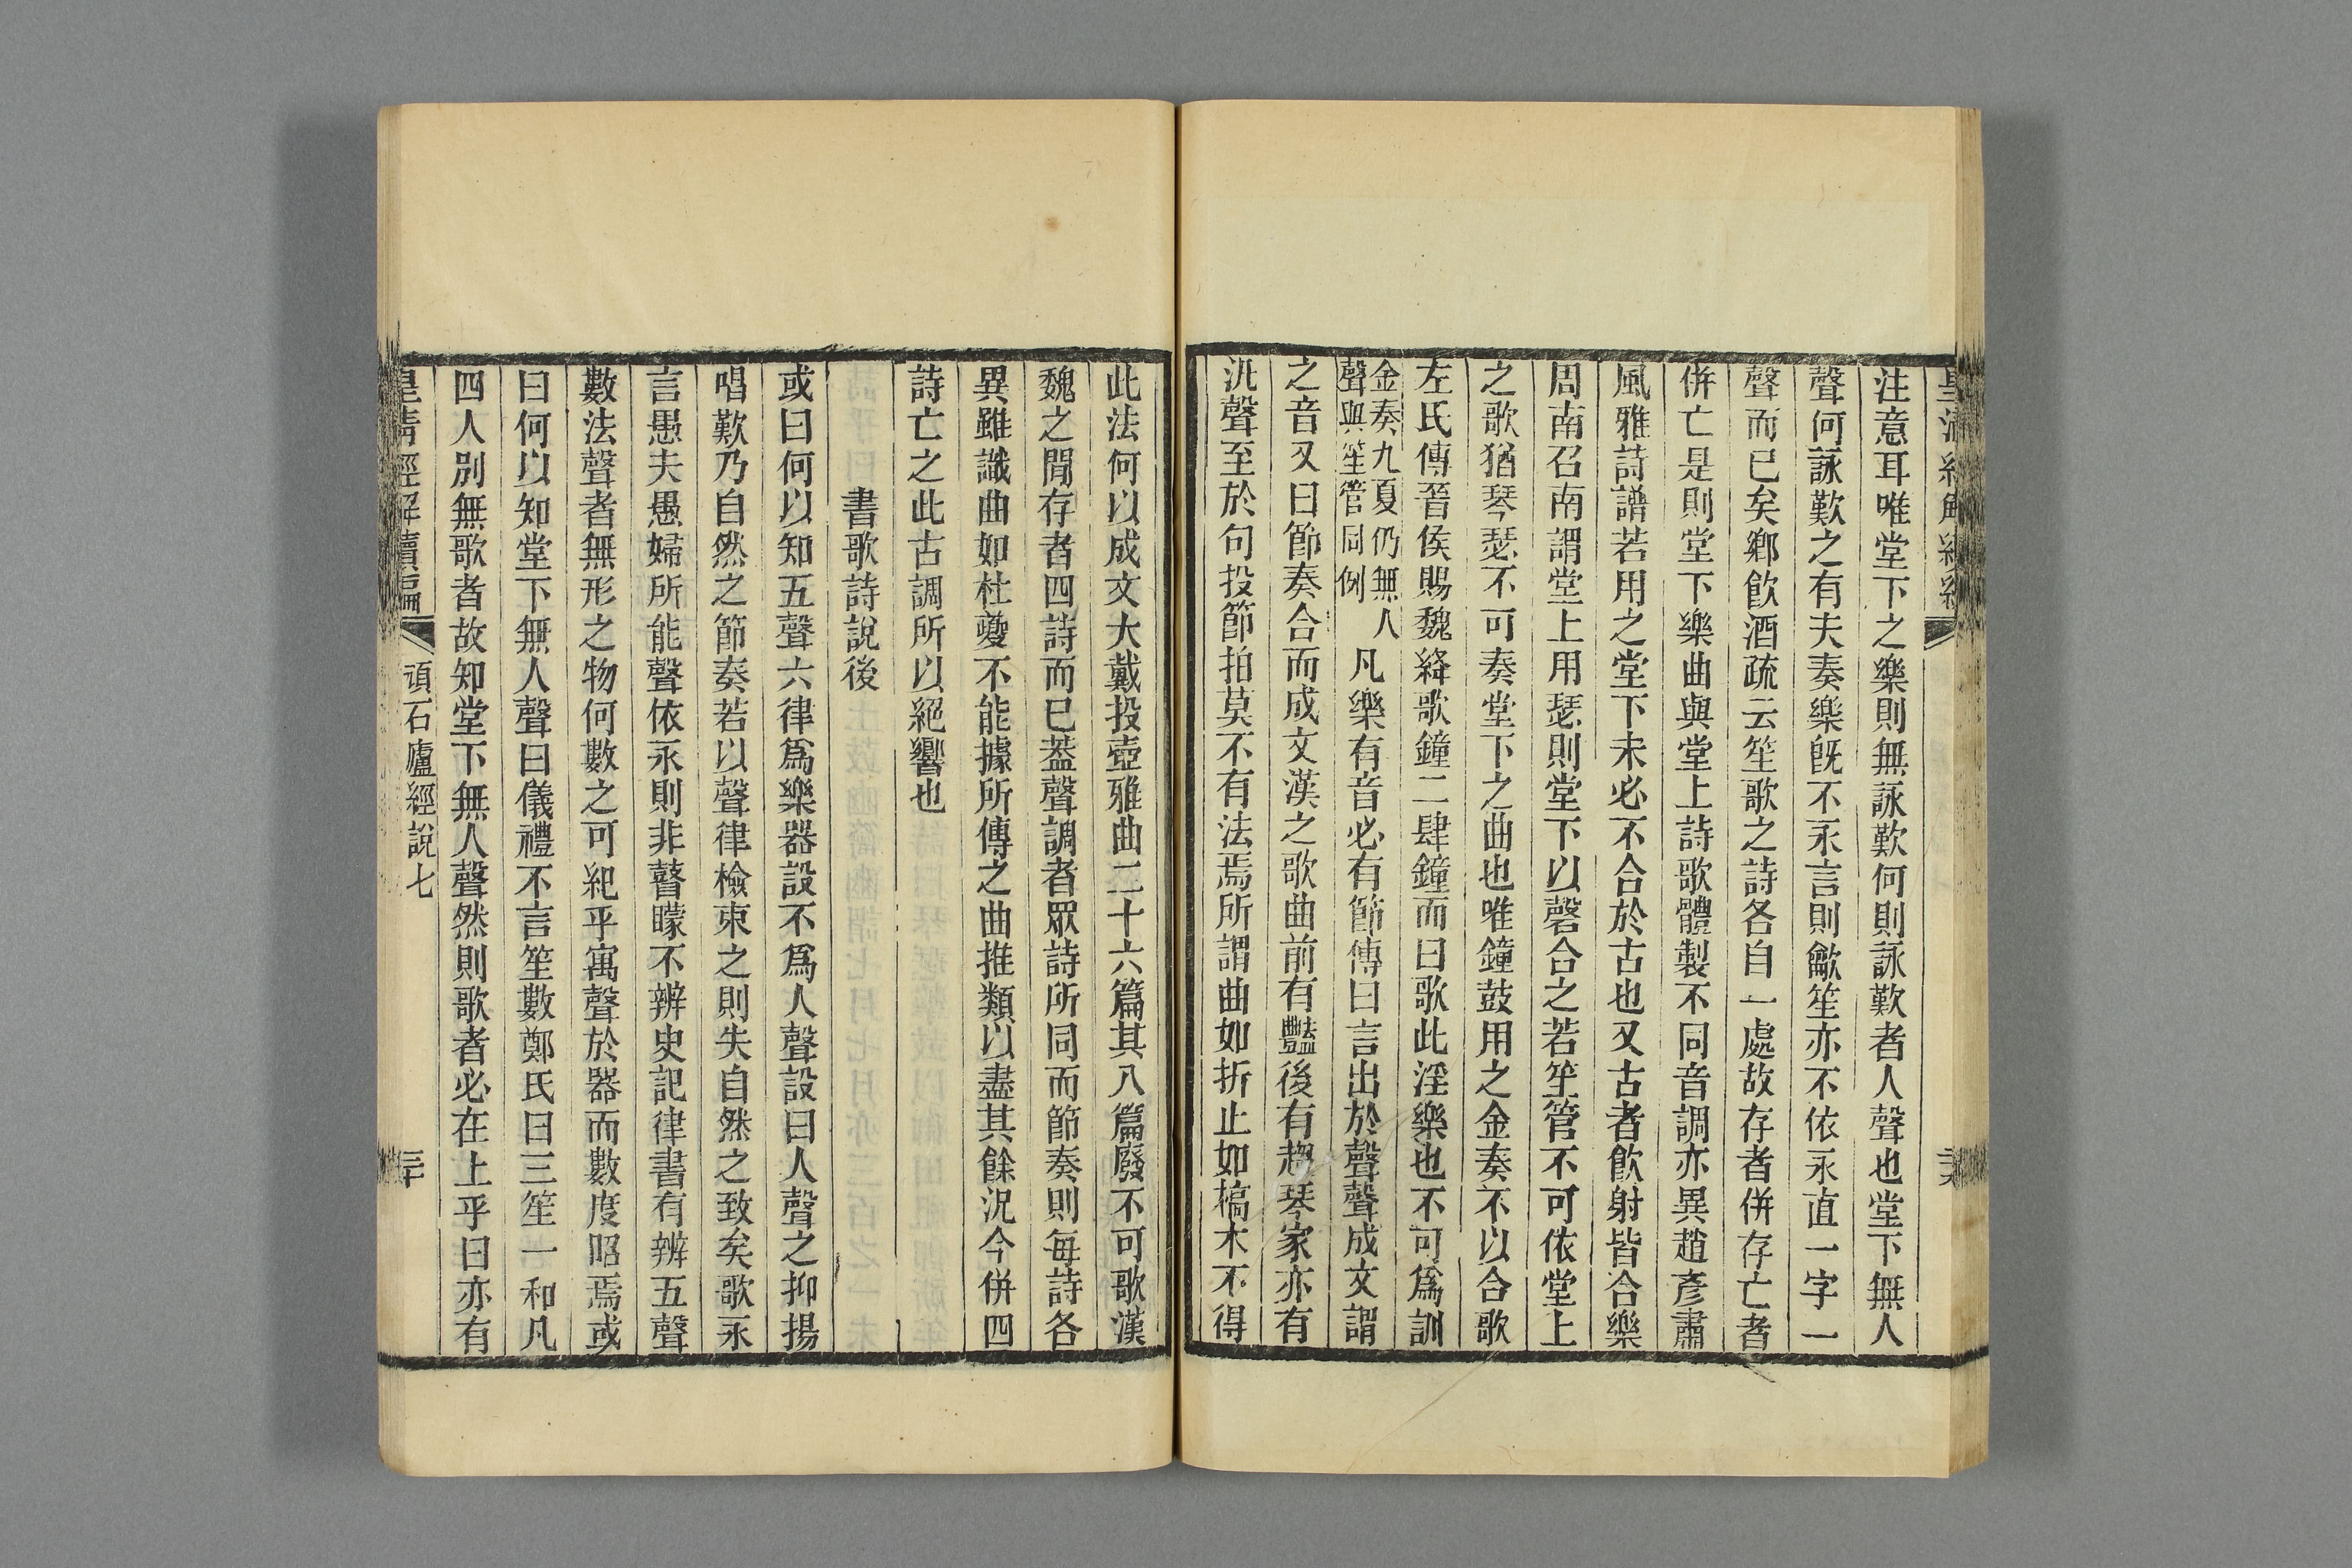 注意耳唯堂下之樂則無詠歎何則詠歎者人聲也堂下無人
聲何詠歎之有夫奏樂旣不永言則龡笙亦不依永直一字一
聲而已矣鄉飮酒疏云笙歌之詩各自一處故存者併存亡者
併亡是則堂下樂曲與堂上詩歌體製不同音調亦異趙彥肅
風雅詩譜若用之堂下未必不合於古也又古者飮射皆合樂
周南召南謂堂上用瑟則堂下以磬合之若笙管不可依堂上
之歌猶琴瑟不可奏堂下之曲也唯鐘鼓用之金奏不以合歌
左氏傳晉侯賜魏絳歌鐘二肆鐘而曰歌此淫樂也不可爲訓
金奏九夏仍無人
聲與笙管同例
凡樂有音必有節傳曰言出於聲聲成文謂
之音又曰節奏合而成文漢之歌曲前有豔後有趨琴家亦有
汎聲至於句投節拍莫不有法焉所謂曲如折止如槁木不得
此法何以成文大戴投壺雅曲二十六篇其八篇廢不可歌漢
魏之閒存者四詩而已葢聲調者眾詩所同而節奏則每詩各
異雖譏曲如杜夔不能據所傳之曲推類以盡其餘況今併四
詩亡之此古調所以絕響也
書歌詩說後
或曰何以知五聲六律爲樂器設不爲人聲設曰人聲之抑揚
唱歎乃自然之節奏若以聲律檢束之則失自然之致矣歌永
言愚夫愚婦所能聲依永則非瞽矇不辨史記律書有辨五聲
數法聲者無形之物何數之可紀乎寓聲於器而數度昭焉或
曰何以知堂下無人聲曰儀禮不言笙數鄭氏曰三笙一和凡
四人別無歌者故知堂下無人聲然則歌者必在上乎曰亦有
皇清經解續編
頑石廬經說七
三十